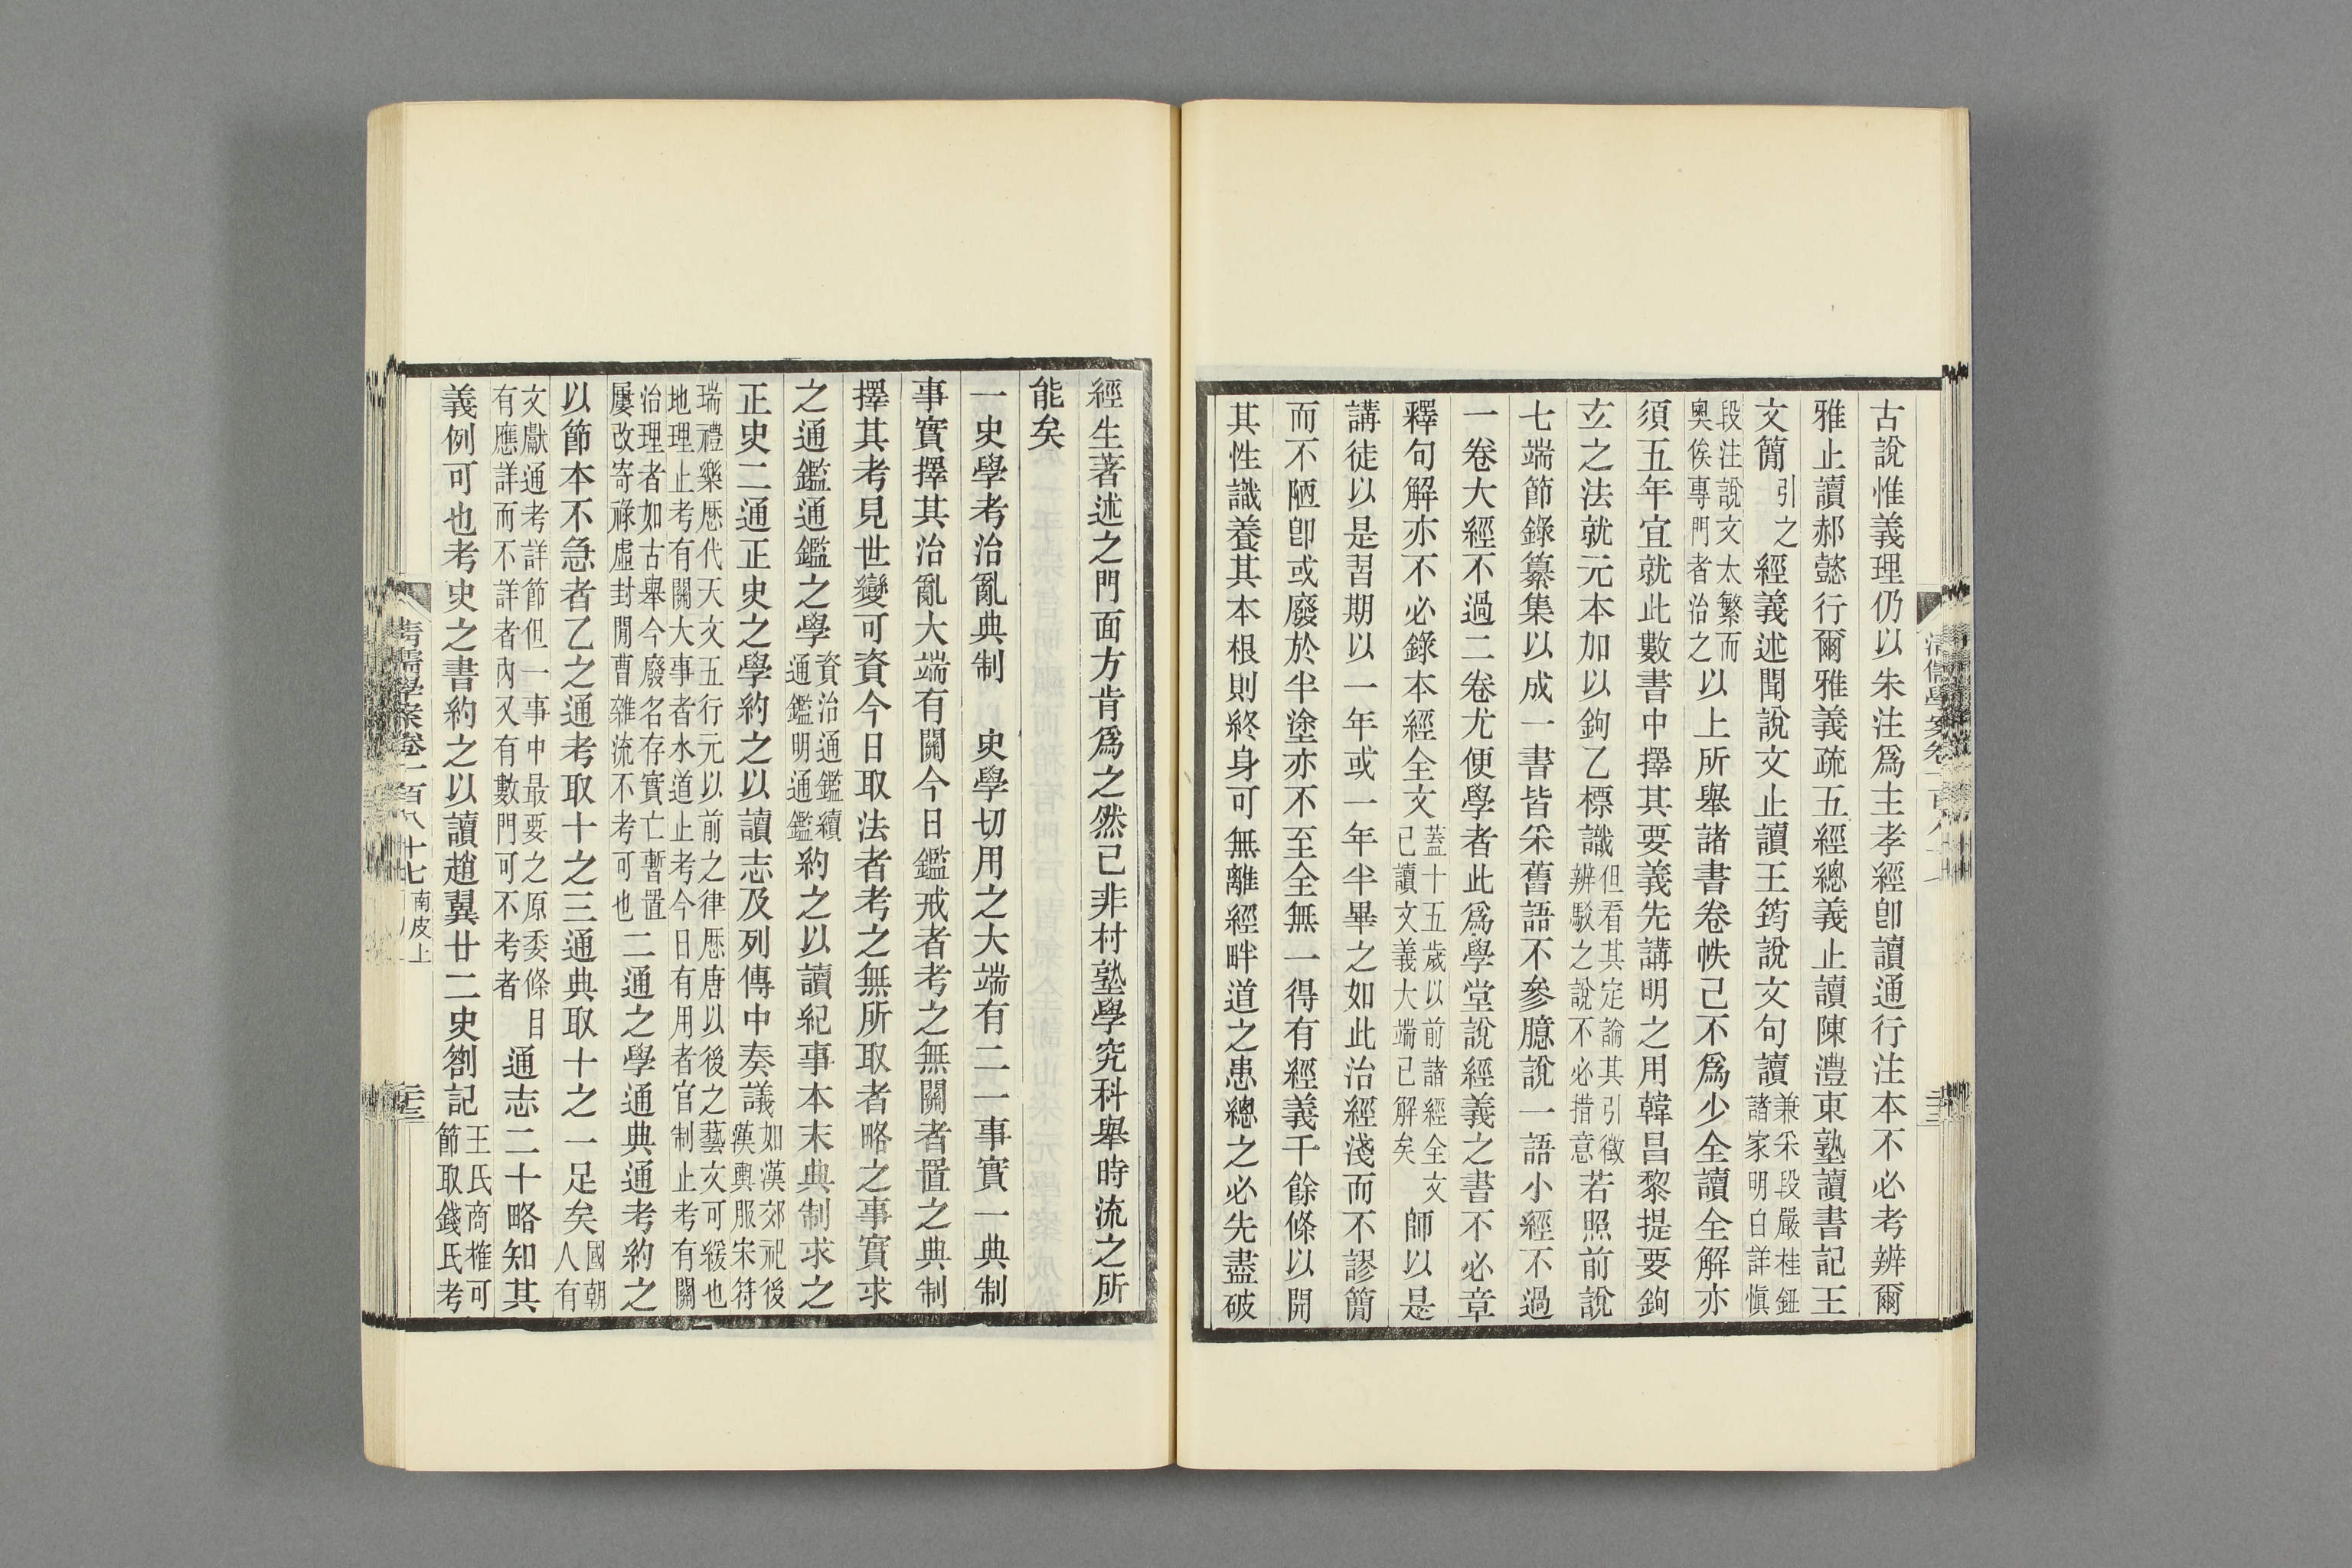 古說惟義理仍以朱注爲主孝經卽讀通行注本不必考辨爾
雅止讀郝懿行爾雅義疏五經總義止讀陳澧東塾讀書記王
文簡引之經義述聞說文止讀王筠說文句讀兼采段嚴桂鈕諸家明白詳愼
段注說文太繁而奧俟專門者治之以上所舉諸書卷帙已不爲少全讀全解亦
須五年宜就此數書中擇其要義先講明之用韓昌黎提要鉤
玄之法就元本加以鉤乙標識但看其定論其引徵辨駁之說不必措意若照前說
七端節錄纂集以成一書皆采舊語不參臆說一語小經不過
一卷大經不過二卷尤便學者此爲學堂說經義之書不必章
釋句解亦不必錄本經全文蓋十五歲以前諸經全文已讀文義大端已解矣師以是
講徒以是習期以一年或一年半畢之如此治經淺而不謬簡
而不陋卽或廢於半塗亦不至全無一得有經義千餘條以開
其性識養其本根則終身可無離經畔道之患總之必先盡破
經生著述之門面方肯爲之然已非村塾學究科舉時流之所
能矣
一史學考治亂典制　史學切用之大端有二一事實一典制
事實擇其治亂大端有關今日鑑戒者考之無關者置之典制
擇其考見世變可資今日取法者考之無所取者略之事實求
之通鑑通鑑之學資治通鑑續通鑑明通鑑約之以讀紀事本末典制求之
正史二通正史之學約之以讀志及列傳中奏議如漢郊祀後漢輿服宋符
瑞禮樂歷代天文五行元以前之律歷唐以後之藝文可緩也地理止考有關大事者水道止考今日有用者官制止考有關
治理者如古舉今廢名存實亡暫置屢改寄祿虛封閒曹雜流不考可也二通之學通典通考約之
以節本不急者乙之通考取十之三通典取十之一足矣國朝人有
文獻通考詳節但一事中最要之原委條目有應詳而不詳者內又有數門可不考者通志二十略知其
義例可也考史之書約之以讀趙翼廿二史劄記王氏商榷可節取錢氏考
清儒學案卷一百八十七　南皮上